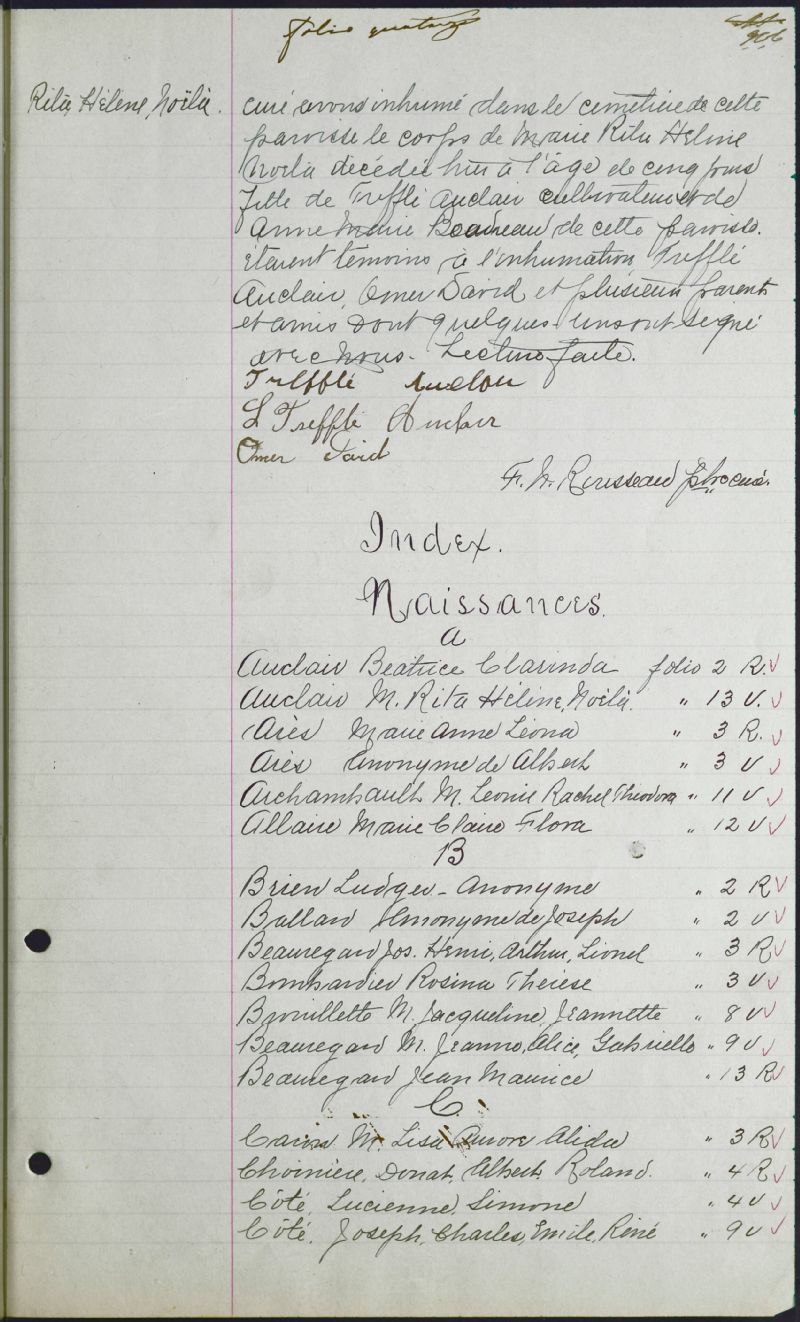 folio quatorze
Rita, Hélène, Noëlla.
curé avons inhumé dans le cemétière de cette
paroisse le corps de Marie Rita Héline
Noëla décédée hier à l'âge de cinq jours
fille de Trefflé Auclair cultivateur et de
Anne Marie de cette paroisse.
étaient témoins à l'inhumation, Trefflé
Auclair, Omer David et plusieurs parents
et amis dont quelques-uns ont signé
avec nous. Lecture faite.
Trefflé Auclair
L Trefflé Auclair
Omer David
F. X. Rousseau ptre curé.
Index.
Naissances.
A
Auclair Beatrice Clarinda folio 2 R. V
Auclair M. Rita Héline, Noëla. " 13 V. V
Ariès Marie Anne Léona " 3 R. V
Ariès Anonyme de Albert " 3 V V
Archambault M. Leonie Rachel Theodora " 11 V V
Allaire Marie Claire Flora " 12 V V
B
Brien Ludger - Anonyme " 2 R V
Ballard Anonyme de Joseph " 2 V V
Beauregard Jos. Henri, Arthur, Lionel " 3 R V
Bombardier Rosina Thérèse " 3 V V
Brouillette M. Jacqueline, Jeannette " 8 V V
Beauregard M. Jeanne, Alice, Gabrielle " 9 V V
Beauregard Jean Maurice " 13 R V
C.
M. Lisa Aurore Alida " 3 R V
Choinière, Donat, Albert, Roland. " 4 R V
Côté, Lucienne, Simone " 4 V V
Côté, Joseph, Charles, Emile, Réné " 9 V V